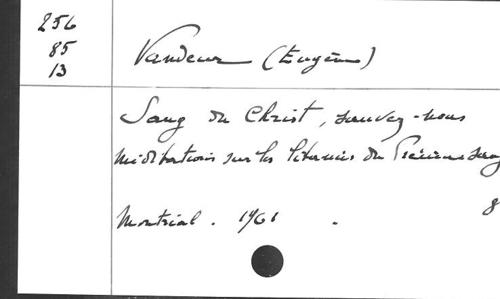 256
85
13
Vandeur (Eugène)
Sang du Christ, sauvez-nous
Méditations sur les litanies du Précieux sang
8
Montréal. 1961.